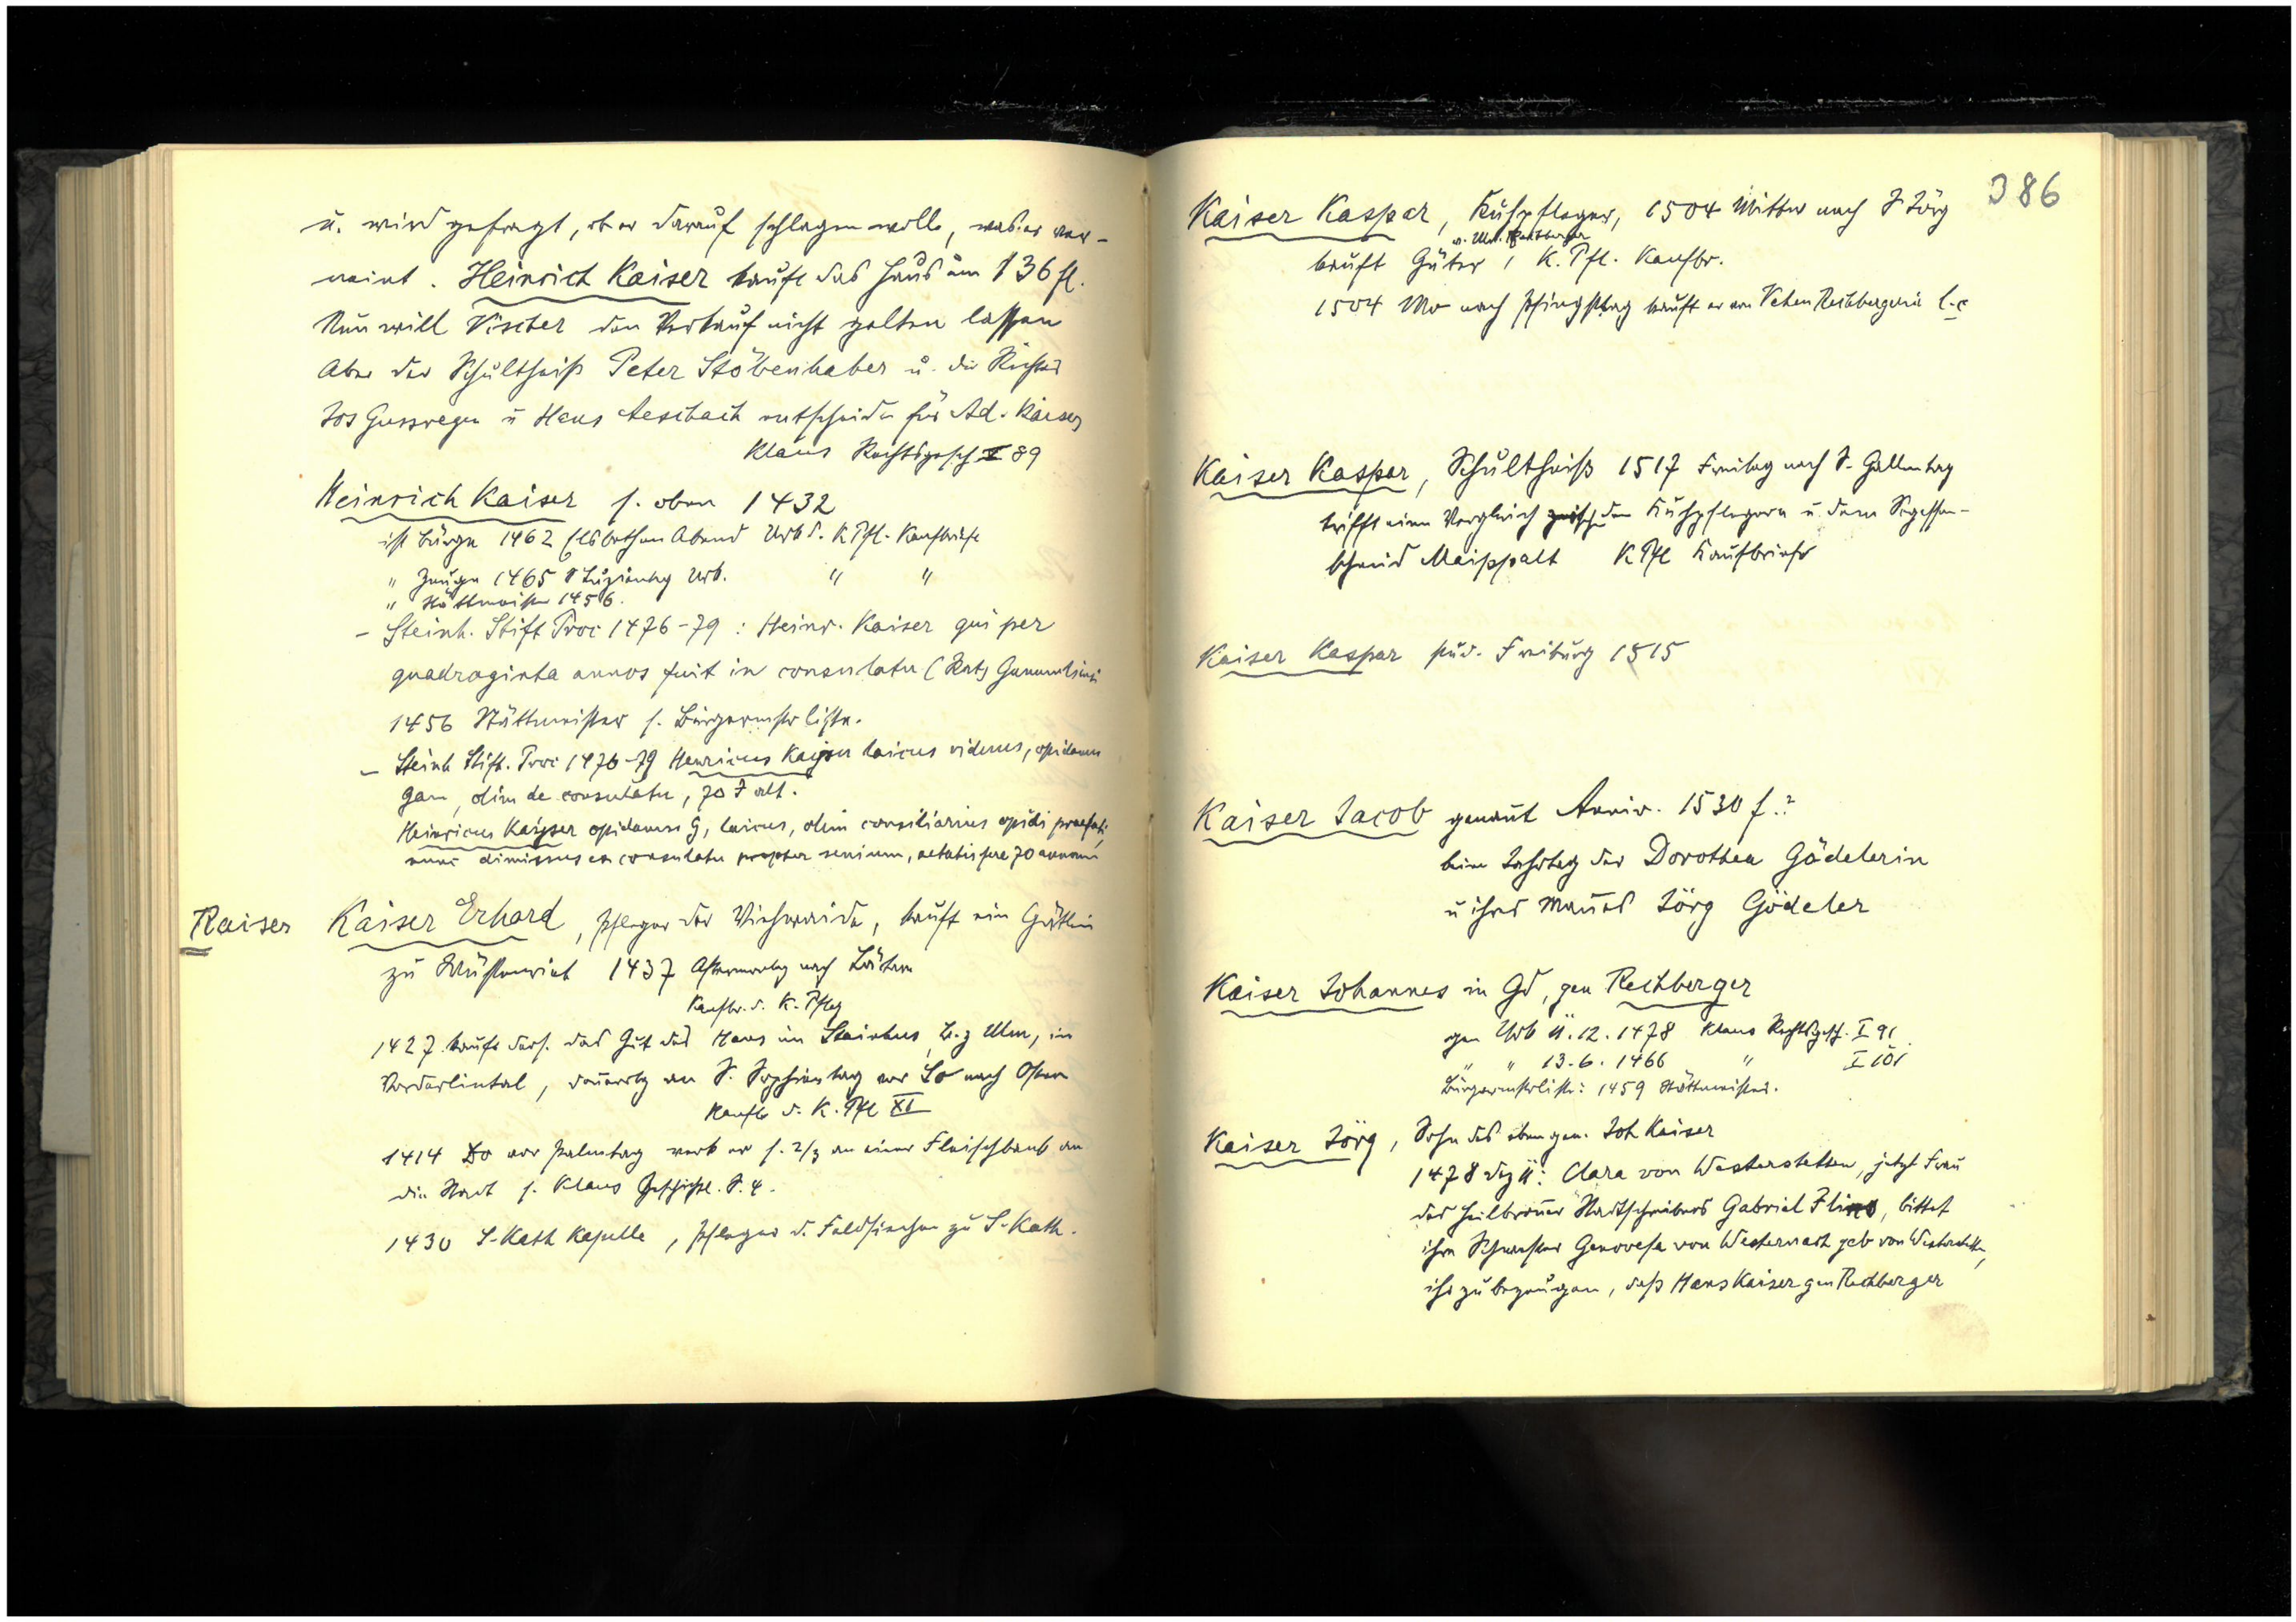 u. wird gefragt, ob er darauf schlagen wolle, was er ver-
neint. Heinrich Kaiser kauft das Haus um 136 fl.
Nun will Vischer den Verkauf nicht gelten lassen
Aber der Schultheiß Peter Stöbenhaber u. die Richter
Jos Gussregen u Hans Aesthach entscheiden für Ad. Kaiser
Klaus Rechtsgesch I 89
Heinrich Kaiser s. oben 1432
ist Bürge 1462 Elsbethen Abend Urb d. K Pfl. Kaufbriefe
" Zeuge 1465 Luzientag Urb. " "
" Stättmeister 1456.
- Steinh. Stift Proc 1476-79: Heinr. Kaiser qui per
quadraginta annos fuit in consulatu (Rat) Gamundiensi
1456 Stättmeister s. Bürgermstrliste.
- Steinh Stift. Proc 1476-79 Henricus Kayser laicus viduus, opidanus
Gam, olim de consulatu, 70 J alt.
Heinricus Kayser opidanus G, laicus, olim consiliarius opidi praefati,
nunc dimissus ex consulatu propter senium, aetatis fere 70 annorum
Kaiser Kaiser Erhard, Pfleger der Viehweide, kauft ein Gütlin
zu Wüstenriet 1437 Aftermontag nach Lätare
Kaufbr. d. K. Pfleg
1427 kauft ders. das Gut des Hans im Steinhus, B. z Ulm, in
Vorderlintal, Donnerstg an S. Sophientag vor So nach Ostern
Kaufb d. K. Pfl XI
1414 Do vor Palmtag verk er s. 2/3 an einer Fleischbank an
die Stadt s. Klaus Geschichtl. S. 4.
1430 S-Kath Kapelle, Pfleger d. Feldsiechen zu S-Kath.
386
Kaiser Kaspar, Kuhpfleger, 1504 Mittw nach S Jörg
v. Ulr. Rechberger
kauft Güter, K. Pfl. Kaufbr.
1504 Mo nach Pfingsttag kauft er von Veten Rechbergerin l. c
Kaiser Kaspar, Schultheiß 1517 Freitag nach S. Gallentag
trifft einen Vergleich zwisch den Kuhpflegern u. dem Segessen-
schmid Maisspalt K Pfl Kaufbriefe
Kaiser Kaspar stud. Freiburg 1515
Kaiser Jacob genannt Anniv. 1530 f.?
beim Jahrtag der Dorothea Gödelerin
u ihres Mannes Jörg Gödeler
Kaiser Johannes in Gd, gen Rechberger
gen Urb 11.12.1478 Klaus Rechtsgesch. I 91
" " 13.6.1466 " I 101
Bürgermstrliste: 1459 Stättmeister.
Kaiser Jörg, Sohn des obengen. Joh Kaiser
1478 Dez 11: Clara von Westerstetten, jetzt Frau
des Heilbronner Stadtschreibers Gabriel, bittet
ihre Schwester Genovefa von Westernach geb von Westerstetten,
ihr zu bezeugen, daß Hans Kaiser gen Rechberger